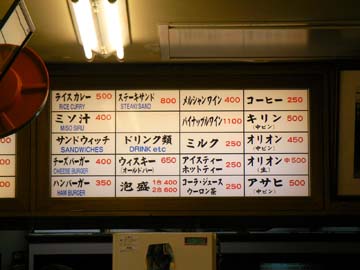 ライスカレー 500
RICE CURRY
ミソ汁 400
MISO SIRU
サンドウィッチ
SANDWICHES
チーズバーガー 400
CHEESE BURGER
ハンバーガー 350
HAM BURGER
ステーキサンド 800
STEAKI SAND
ドリンク類
DRINK etc
ウィスキー 650
(オールドパー)
泡盛 1合 400
2合 600
メルシャンワイン 400
パイナップルワイン 1100
ミルク 250
アイスティー
ホットティー 250
コーラ・ジュース
ウーロン茶 250
コーヒー 250
キリン 500
(中ビン)
オリオン 450
(中ビン)
オリオン 中500
(生)
アサヒ 500
(中ビン)